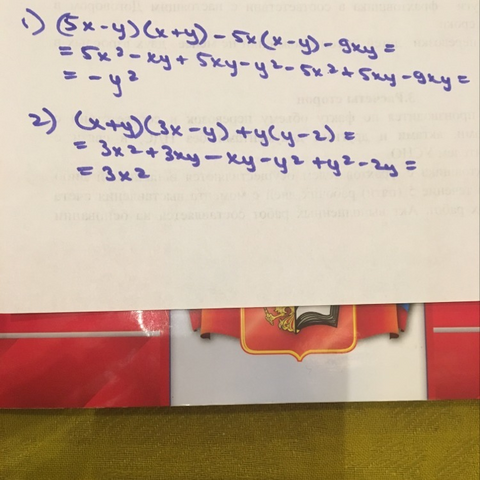 1) (5x-y)(x+y)-5x(x-y)-9xy=
=5x²-xy+5xy-y²-5x²+5xy-9xy=
=-y²
2) (x+y)(3x-y)+y(y-2)=
=3x²+3xy-xy-y²+y²-2y=
=3x2